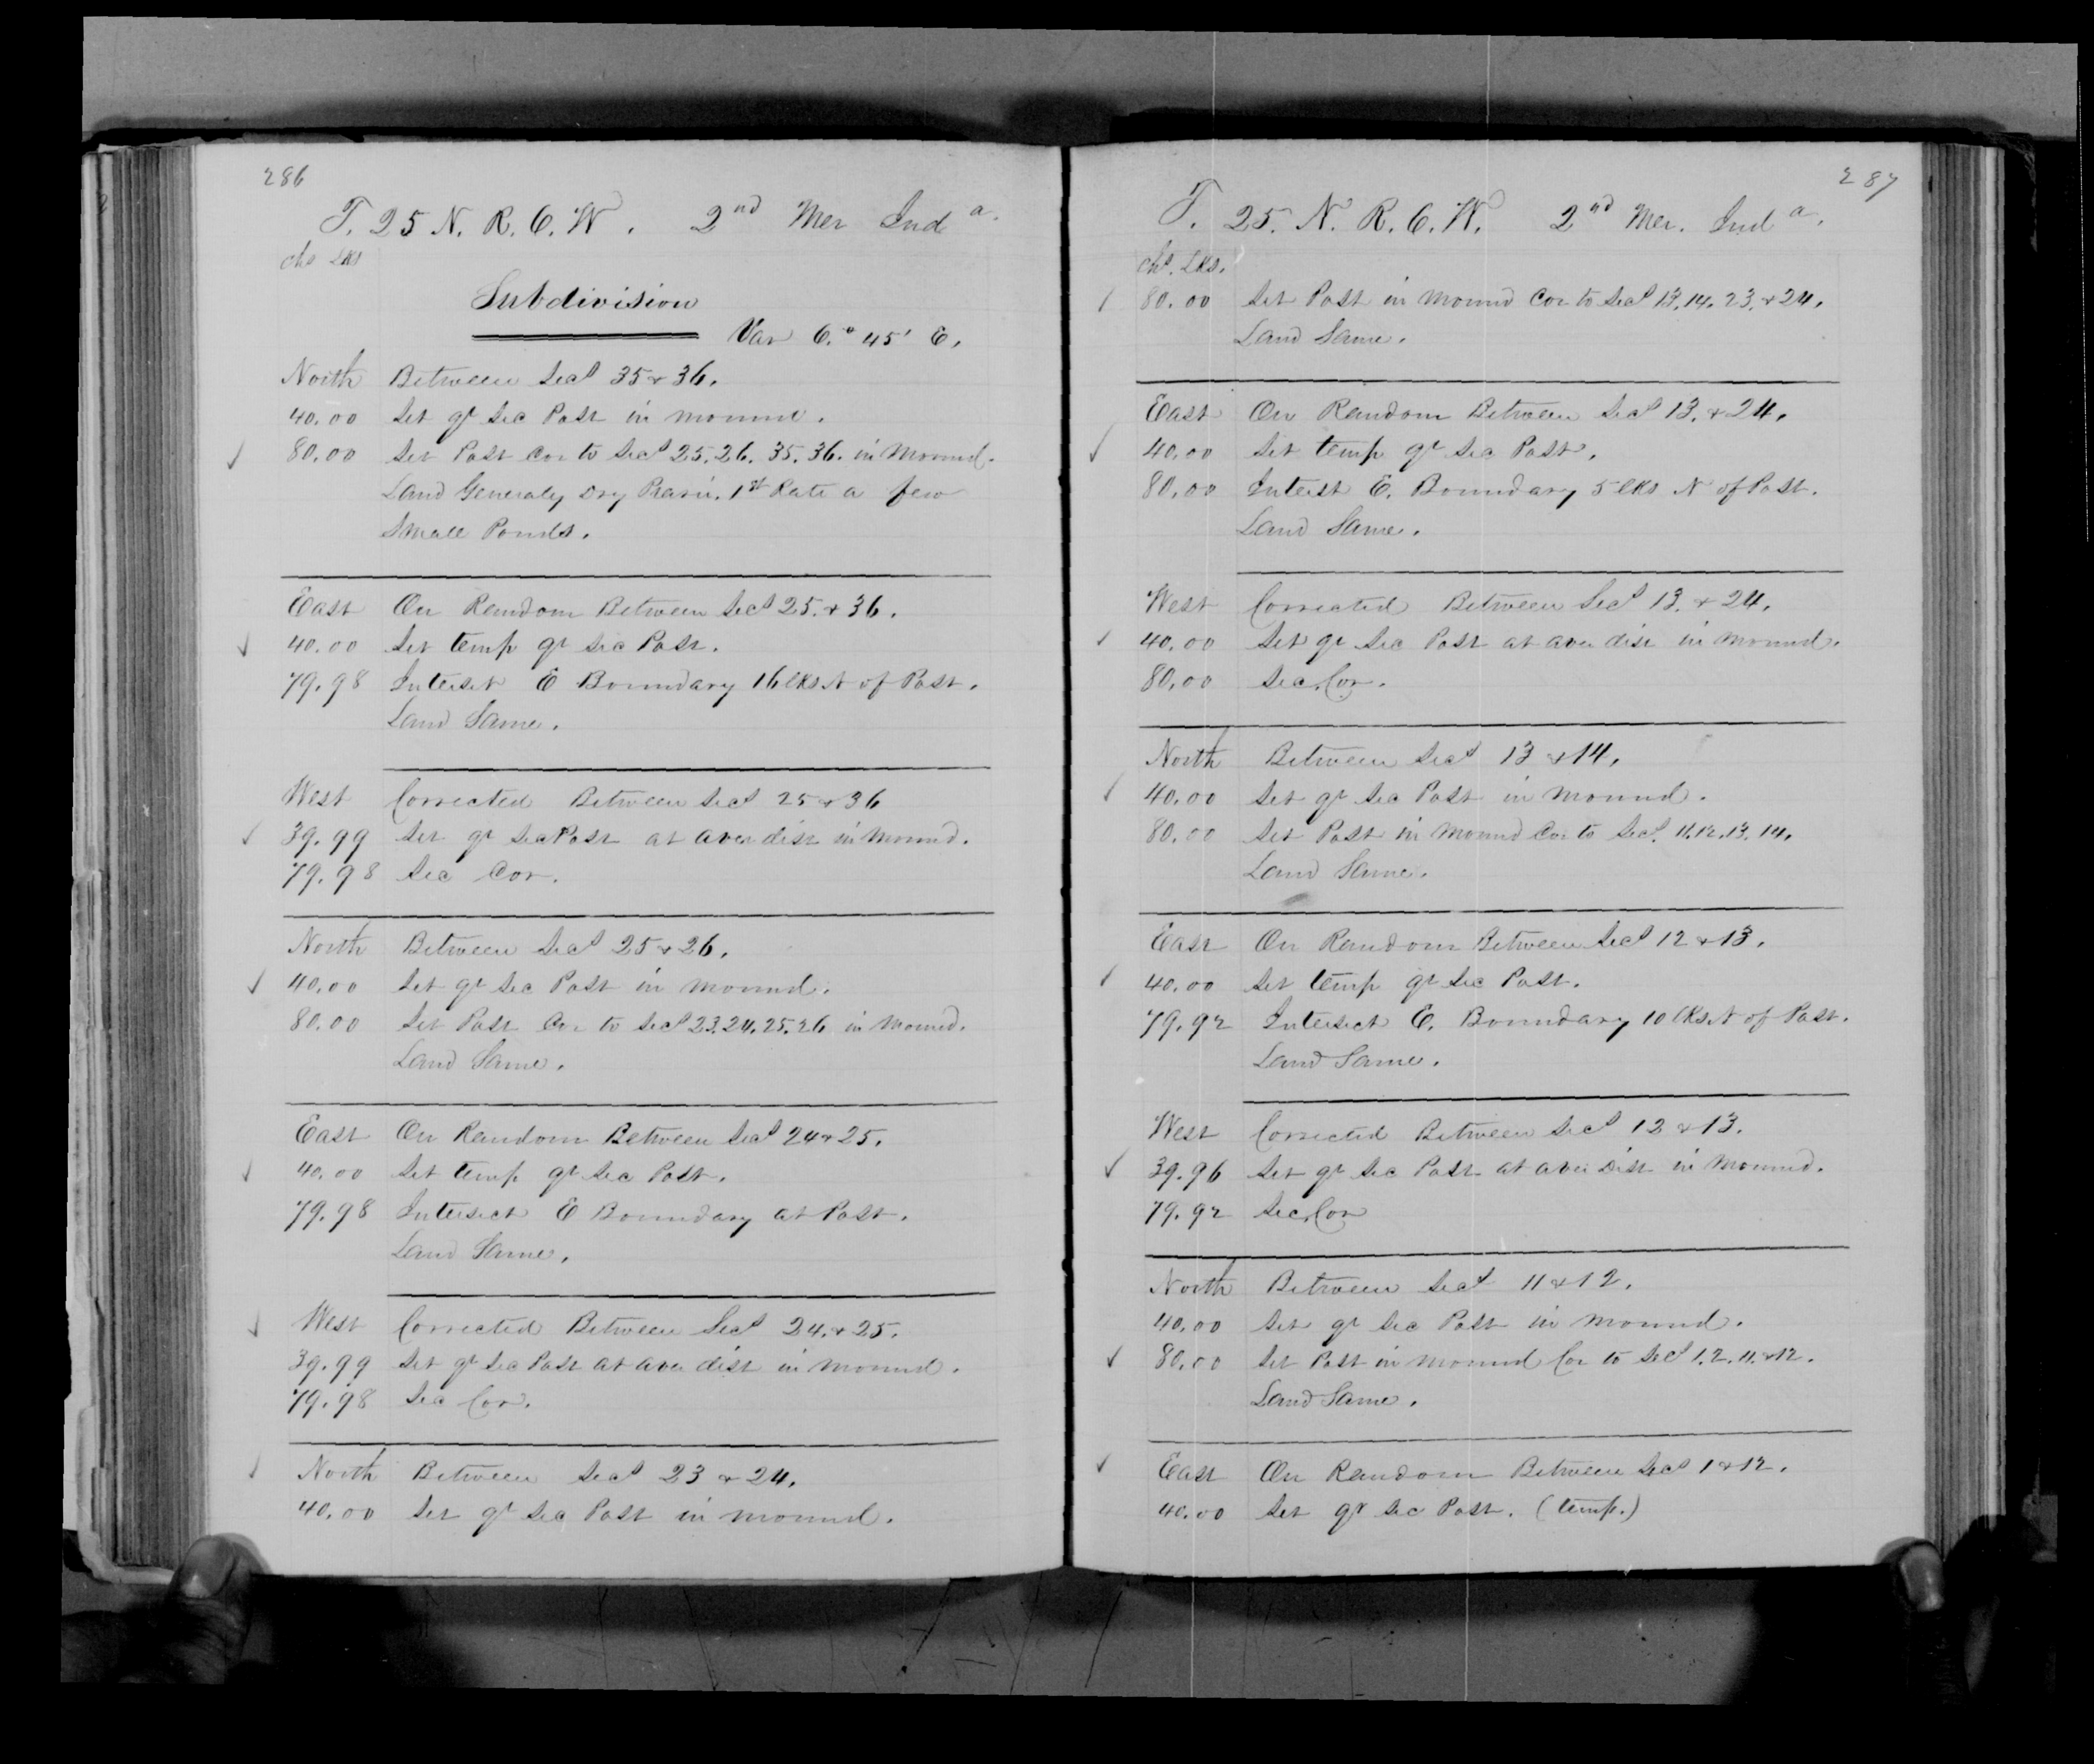 286
T. 25 N. R. 6. W. 2nd Mer Ind a.
chs Lks
Subdivision
Var 6.° 45' E.
North Between Secs 35 & 36.
40.00 Set qr Sec Post in mound.
80.00 Set Post Cor to Secs 25. 26. 35. 36. in Mound.
Land Generaly Dry Prarie. 1st Rate a few
Small Ponds.
East On Random Between Secs 25. & 36.
40.00 Set temp qr Sec Post.
79.98 Interset E Boundary 16 lks N of Post.
Land Same.
West Corrected Between Secs 25 & 36
39.99 Set qr Sec Post at aver dist in Mound.
79.98 Sec Cor.
North Between Secs 25 & 26.
40.00 Set qr Sec Post in mound.
80.00 Set Post Cor to Secs 23. 24. 25. 26 in Mound.
Land Same.
East On Random Between Secs 24 & 25.
40.00 Set temp qr Sec Post.
79.98 Intersect E Boundary at Post.
Land Same.
West Corrected Between Secs 24. & 25.
39.99 Set qr Sec Post at aver dist in mound.
79.98 Sec Cor.
North Between Secs 23 & 24.
40.00 Set qr Sec Post in mound.
287
T. 25. N. R. 6. W. 2nd Mer. Ind a.
chs. Lks.
80.00 Set Post in Mound Cor to Secs 13. 14. 23. & 24.
Land Same.
East On Random Between Secs 13. & 24.
40.00 Set temp qr Sec Post.
80.00 Interst E. Boundary 5 lks N of Post.
Land Same.
West Corrected Between Secs 13. & 24.
40.00 Set qr Sec Post at aver dist in mound.
80.00 Sec. Cor.
North Between Secs 13 & 14.
40.00 Set qr Sec Post in Mound.
80.00 Set Post in Mound Cor to Secs. 11. 12. 13. 14.
Land Same.
East On Random Between Secs 12 & 13.
40.00 Set temp qr Sec Post.
79.92 Intersect E. Boundary 10 lks N of Post.
Land Same.
West Corrected Between Secs 12 & 13.
39.96 Set qr Sec Post at aver Dist in Mound.
79.92 Sec. Cor
North Between Secs 11 & 12.
40.00 Set qr Sec Post in mound.
80.00 Set Post in mound Cor to Secs 1. 2. 11. & 12.
Land Same.
East On Random Between Secs 1 & 12.
40.00 Set qr Sec Post. (temp.)